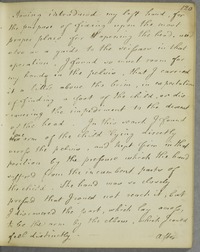 Having introduced my left hand, for
the purpose of fixing upon the most
proper place for opening the head, and
as a guide to the scissors in that
operation, I found so much room for
my hand in the pelvis, that I carried
it a little above the brim, in expectation
of finding a foot of the child, or dis-
covering the impediment to the descent
of the head. In this search I found
arm of the child lying directly
across the pelvis, and kept firm in that
position by the pressure which the hand
suffered from the incumbent parts of
the child. The hand was so closely
pressed that I could not reach it, but
I discovered the part, which lay across,
to be the arm by the elbow, which I could
feel distinctly.